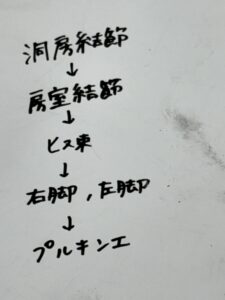 洞房結節
↓
房室結節
↓
ヒス束
↓
右脚,左脚
↓
プルキンエ